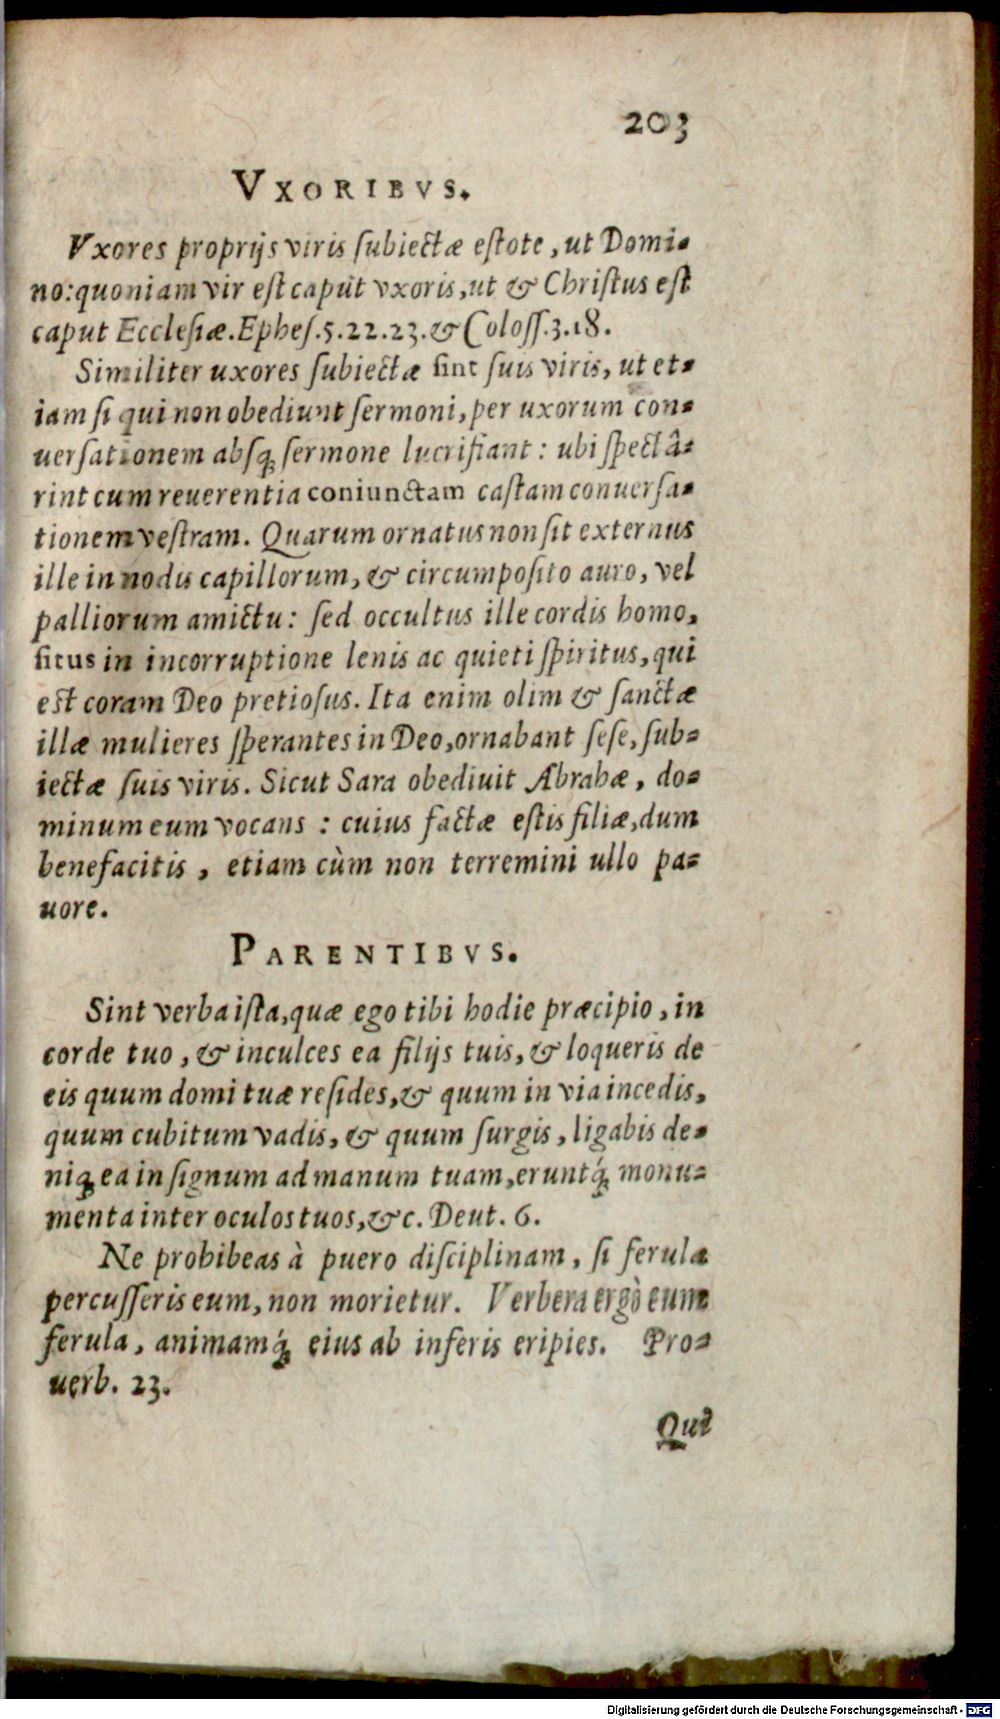 203
VXORIBVS.
Vxores proprijs viris ſubiectæ eſtote, ut Domi-
no: quoniam vir eſt caput vxoris, ut & Chriſtus eſt
caput Eccleſiæ. Epheſ. 5. 22. 23. & Coloſſ. 3. 18.
Similiter uxores ſubiectæ sint ſuis viris, ut et-
iam ſi qui non obediunt ſermoni, per uxorum con-
uerſationem abſq; ſermone lucrifiant: ubi ſpectâ-
rint cum reuerentia coniunctam caſtam conuerſa-
tionem veſtram. Quarum ornatus non ſit externus
ille in nodis capillorum, & circumpoſito auro, vel
palliorum amictu: ſed occultus ille cordis homo,
situs in incorruptione lenis ac quieti ſpiritus, qui
eſt coram Deo pretioſus. Ita enim olim & ſanctæ
illæ mulieres ſperantes in Deo, ornabant ſeſe, ſub-
iectæ ſuis viris. Sicut Sara obediuit Abrahæ, do-
minum eum vocans: cuius factæ eſtis filiæ, dum
benefacitis, etiam cùm non terremini ullo pa-
uore.
PARENTIBVS.
Sint verba iſta, quæ ego tibi hodie præcipio, in
corde tuo, & inculces ea filijs tuis, & loqueris de
eis quum domi tuæ reſides, & quum in via incedis,
quum cubitum vadis, & quum ſurgis, ligabis de-
niq; ea in ſignum ad manum tuam, eruntq́; monu-
menta inter oculos tuos, &c. Deut. 6.
Ne prohibeas à puero diſciplinam, ſi ferula
percuſſeris eum, non morietur. Verbera ergò eum
ferula, animamq́; eius ab inferis eripies. Pro-
uerb. 23.
Qui
Digitalisierung gefördert durch die Deutsche Forschungsgemeinschaft - DFG